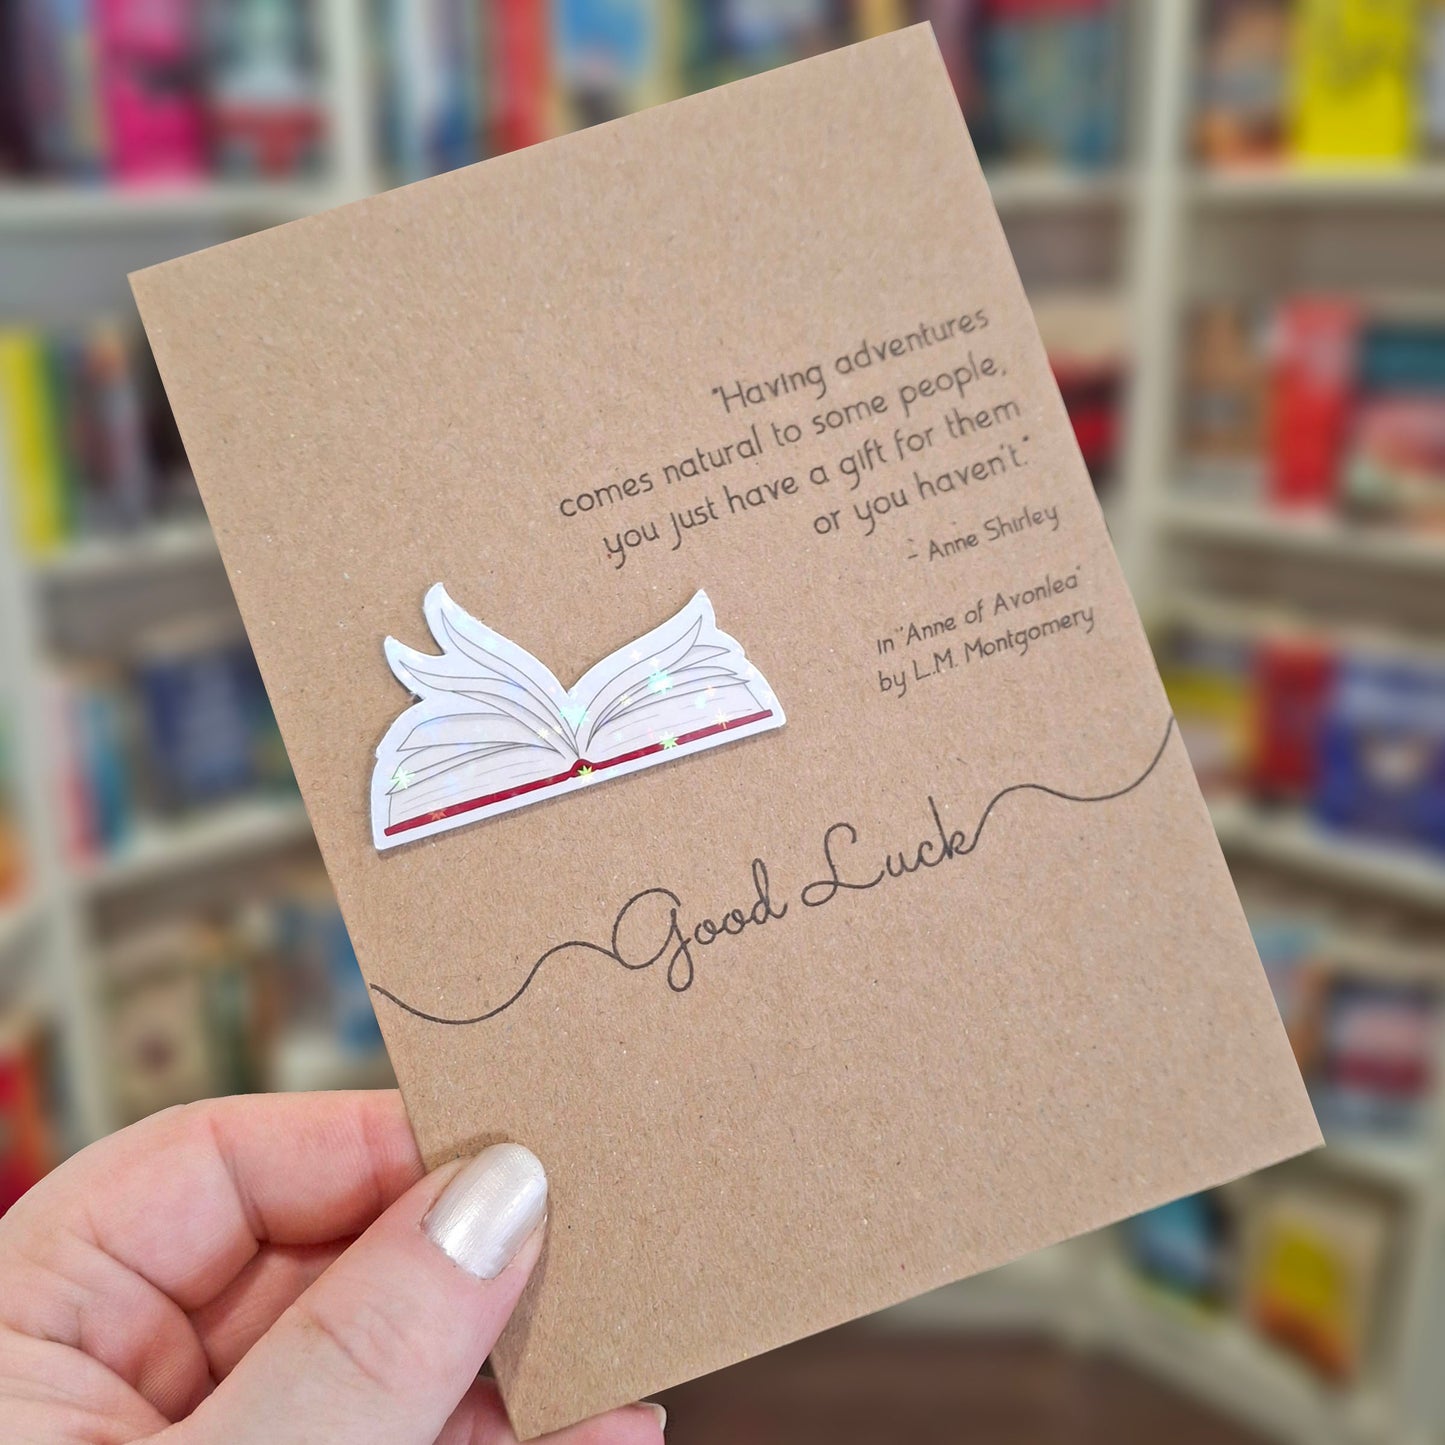 "Having adventures
comes natural to some people,
you just have a gift for them
or you haven't."
- Anne Shirley
in "Anne of Avonlea"
by L.M. Montgomery
Good Luck